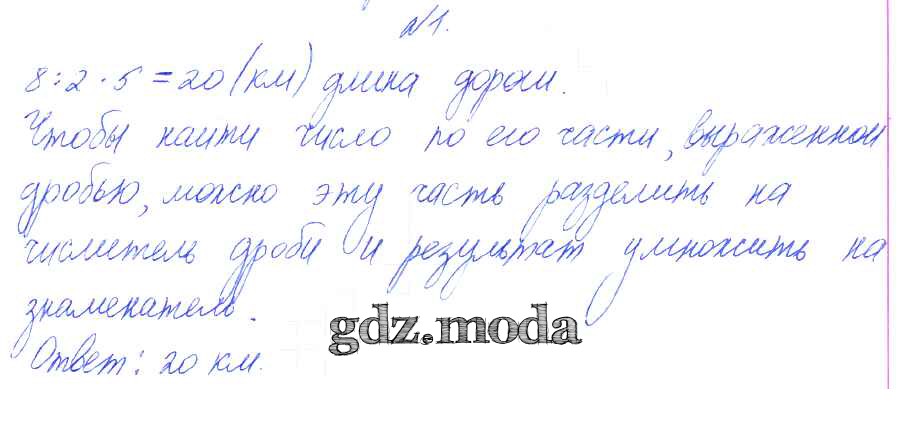 №1.
8:2·5=20 (км) длина дороги.
Чтобы найти число по его части, выраженной
дробью, можно эту часть разделить на
числитель дроби и результат умножить на
знаменатель.
gdz.moda
Ответ: 20 км.